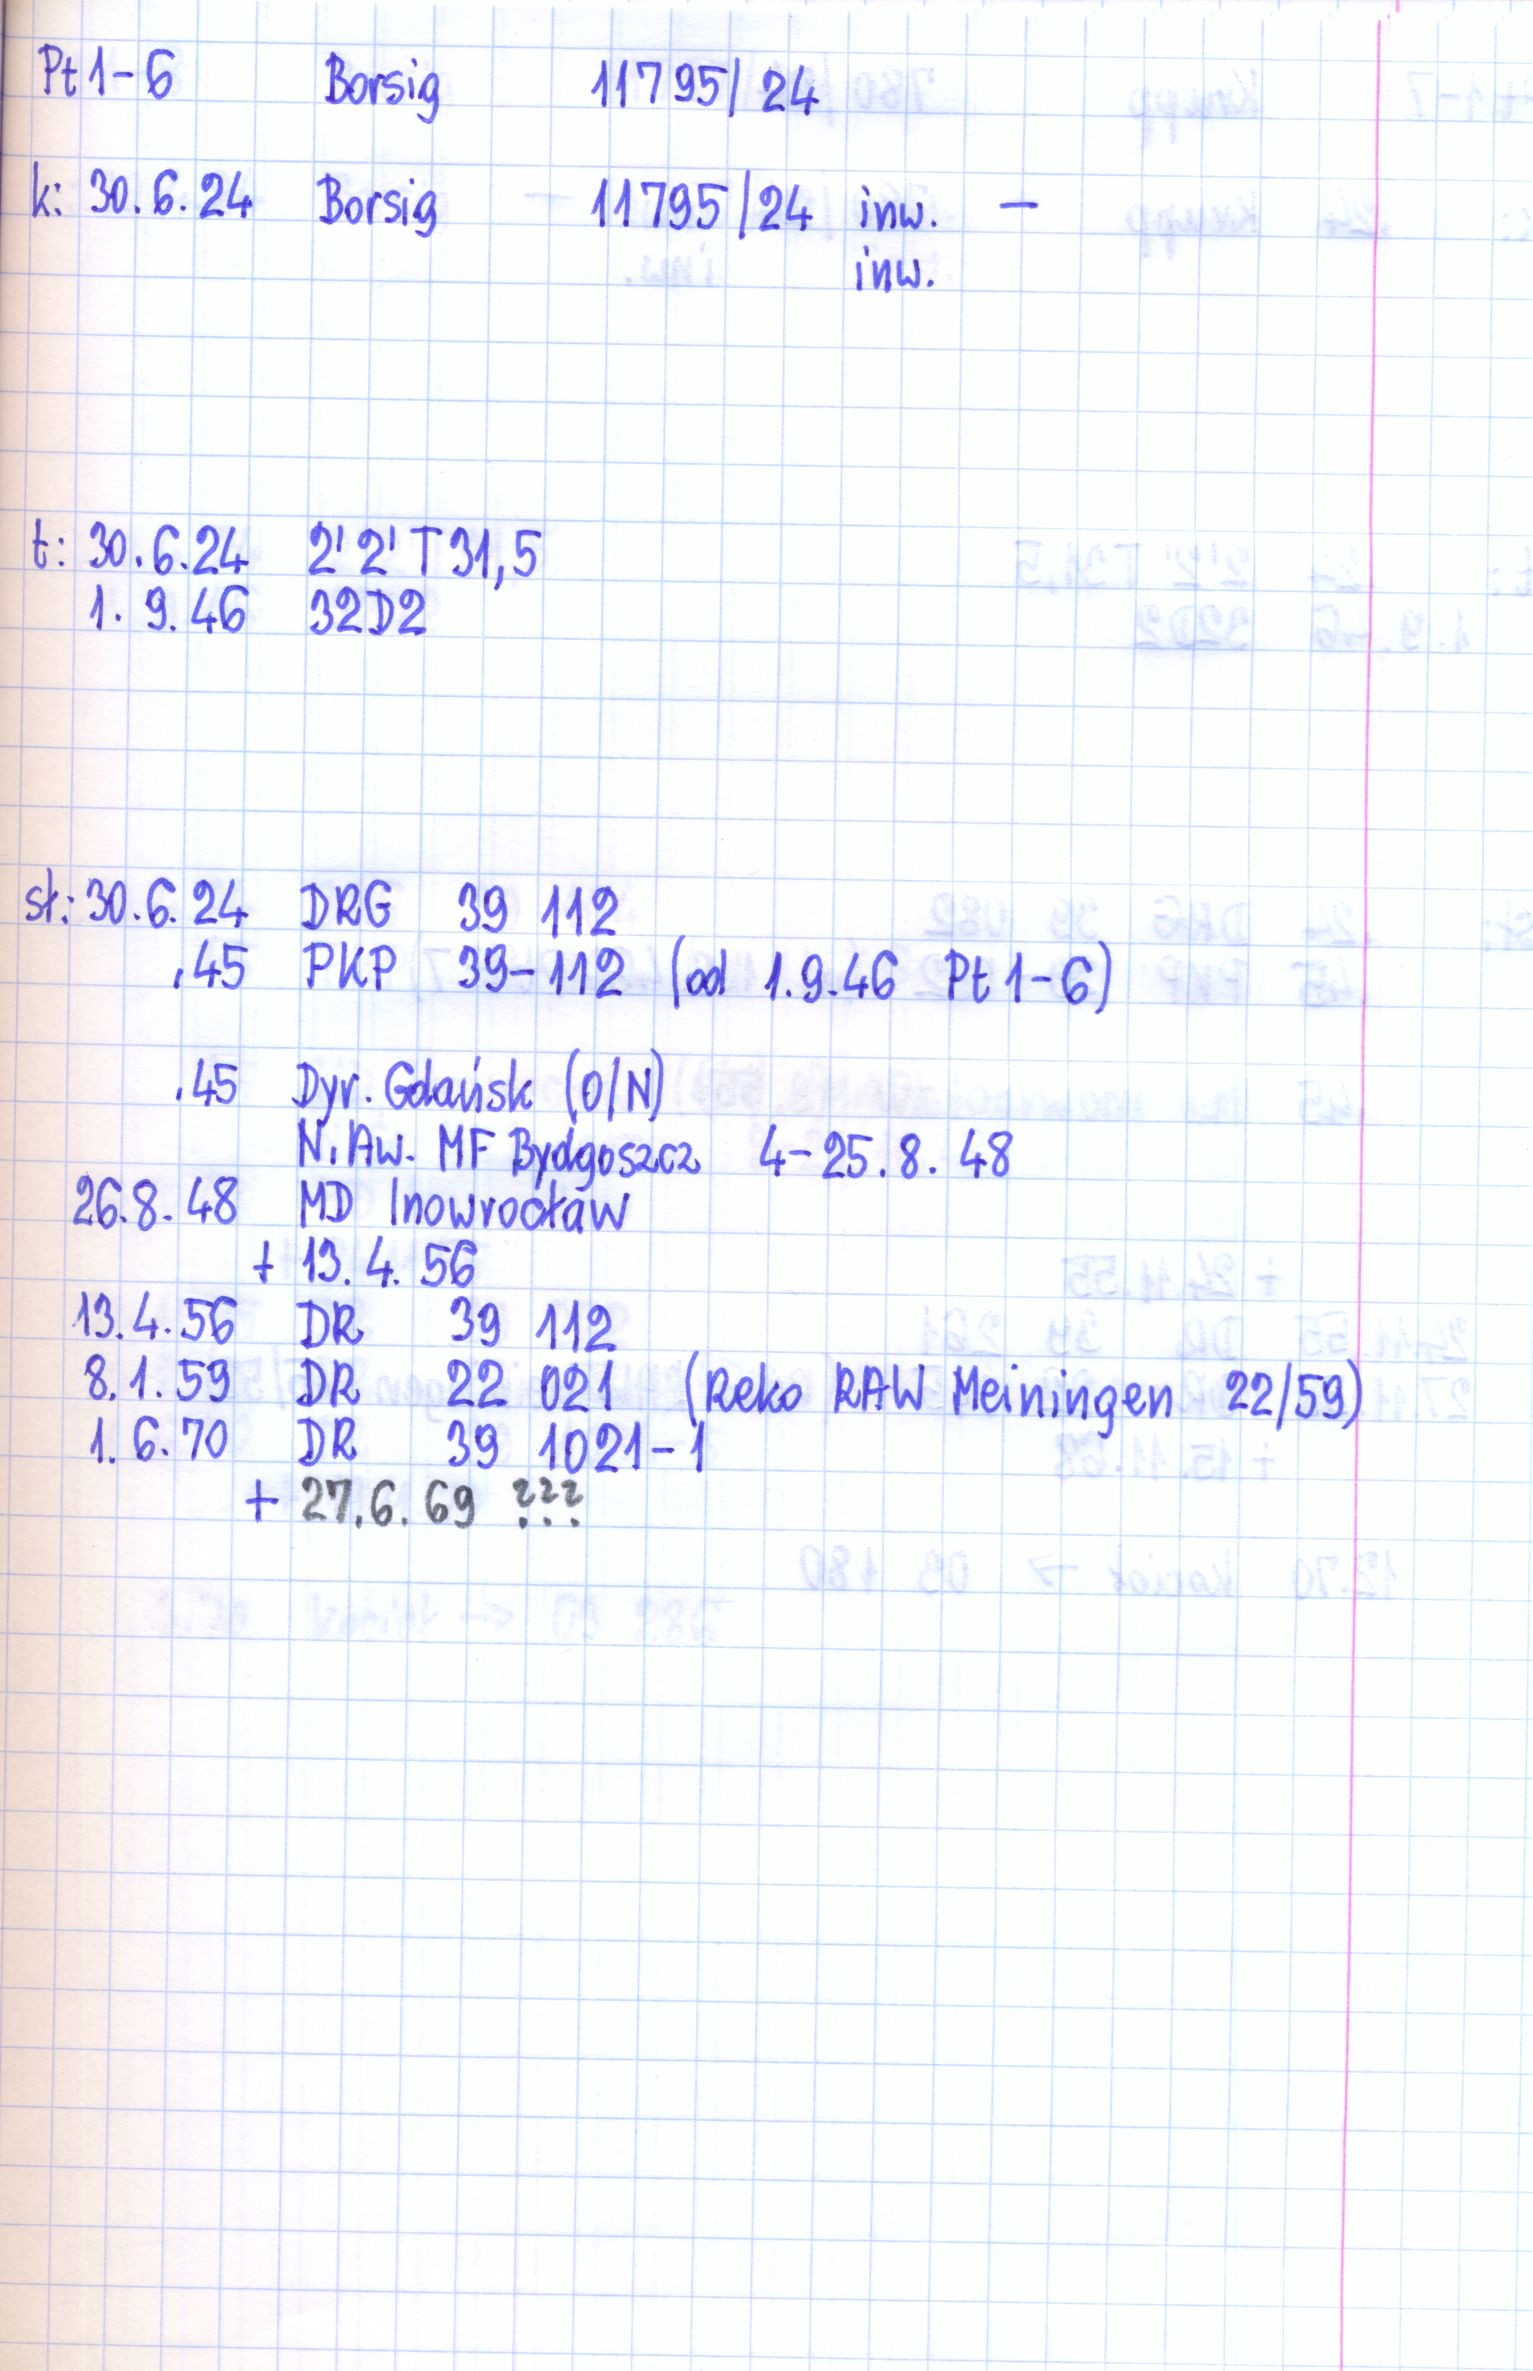 Pt 1-6 Borsig 11795/24
k: 30.6.24 Borsig 11795/24 inw. -
inw.
t: 30.6.24 2'2' T 31,5
1.9.46 32D2
st: 30.6.24 DRG 39 112
.45 PKP 39-112 (od 1.9.46 Pt 1-6)
.45 Dyr. Gdańsk (O/N)
N. Aw. MF Bydgoszcz 4-25.8.48
26.8.48 MD Inowrocław
+ 13.4.56
13.4.56 DR 39 112
8.1.59 DR 22 021 (Reko RAW Meiningen 22/59)
1.6.70 DR 39 1021-1
+ 27.6.69 ???